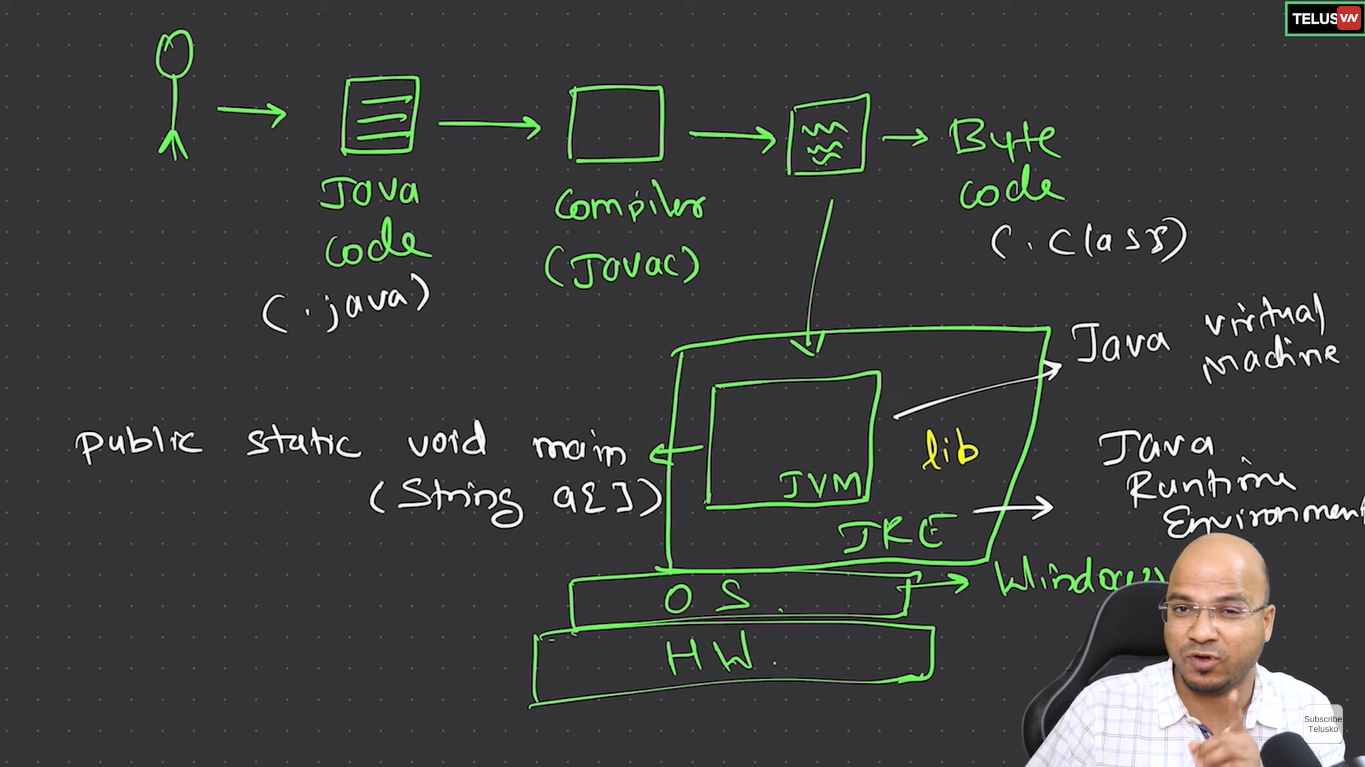 TELUSKO
Java
code
(.java)
Compiler
(Javac)
Byte
code
(.class)
Java virtual
machine
public static void main
(String a[])
lib
JVM
Java
Runtime
Environment
JRE
OS.
Windows
HW.
Subscribe
Telusko